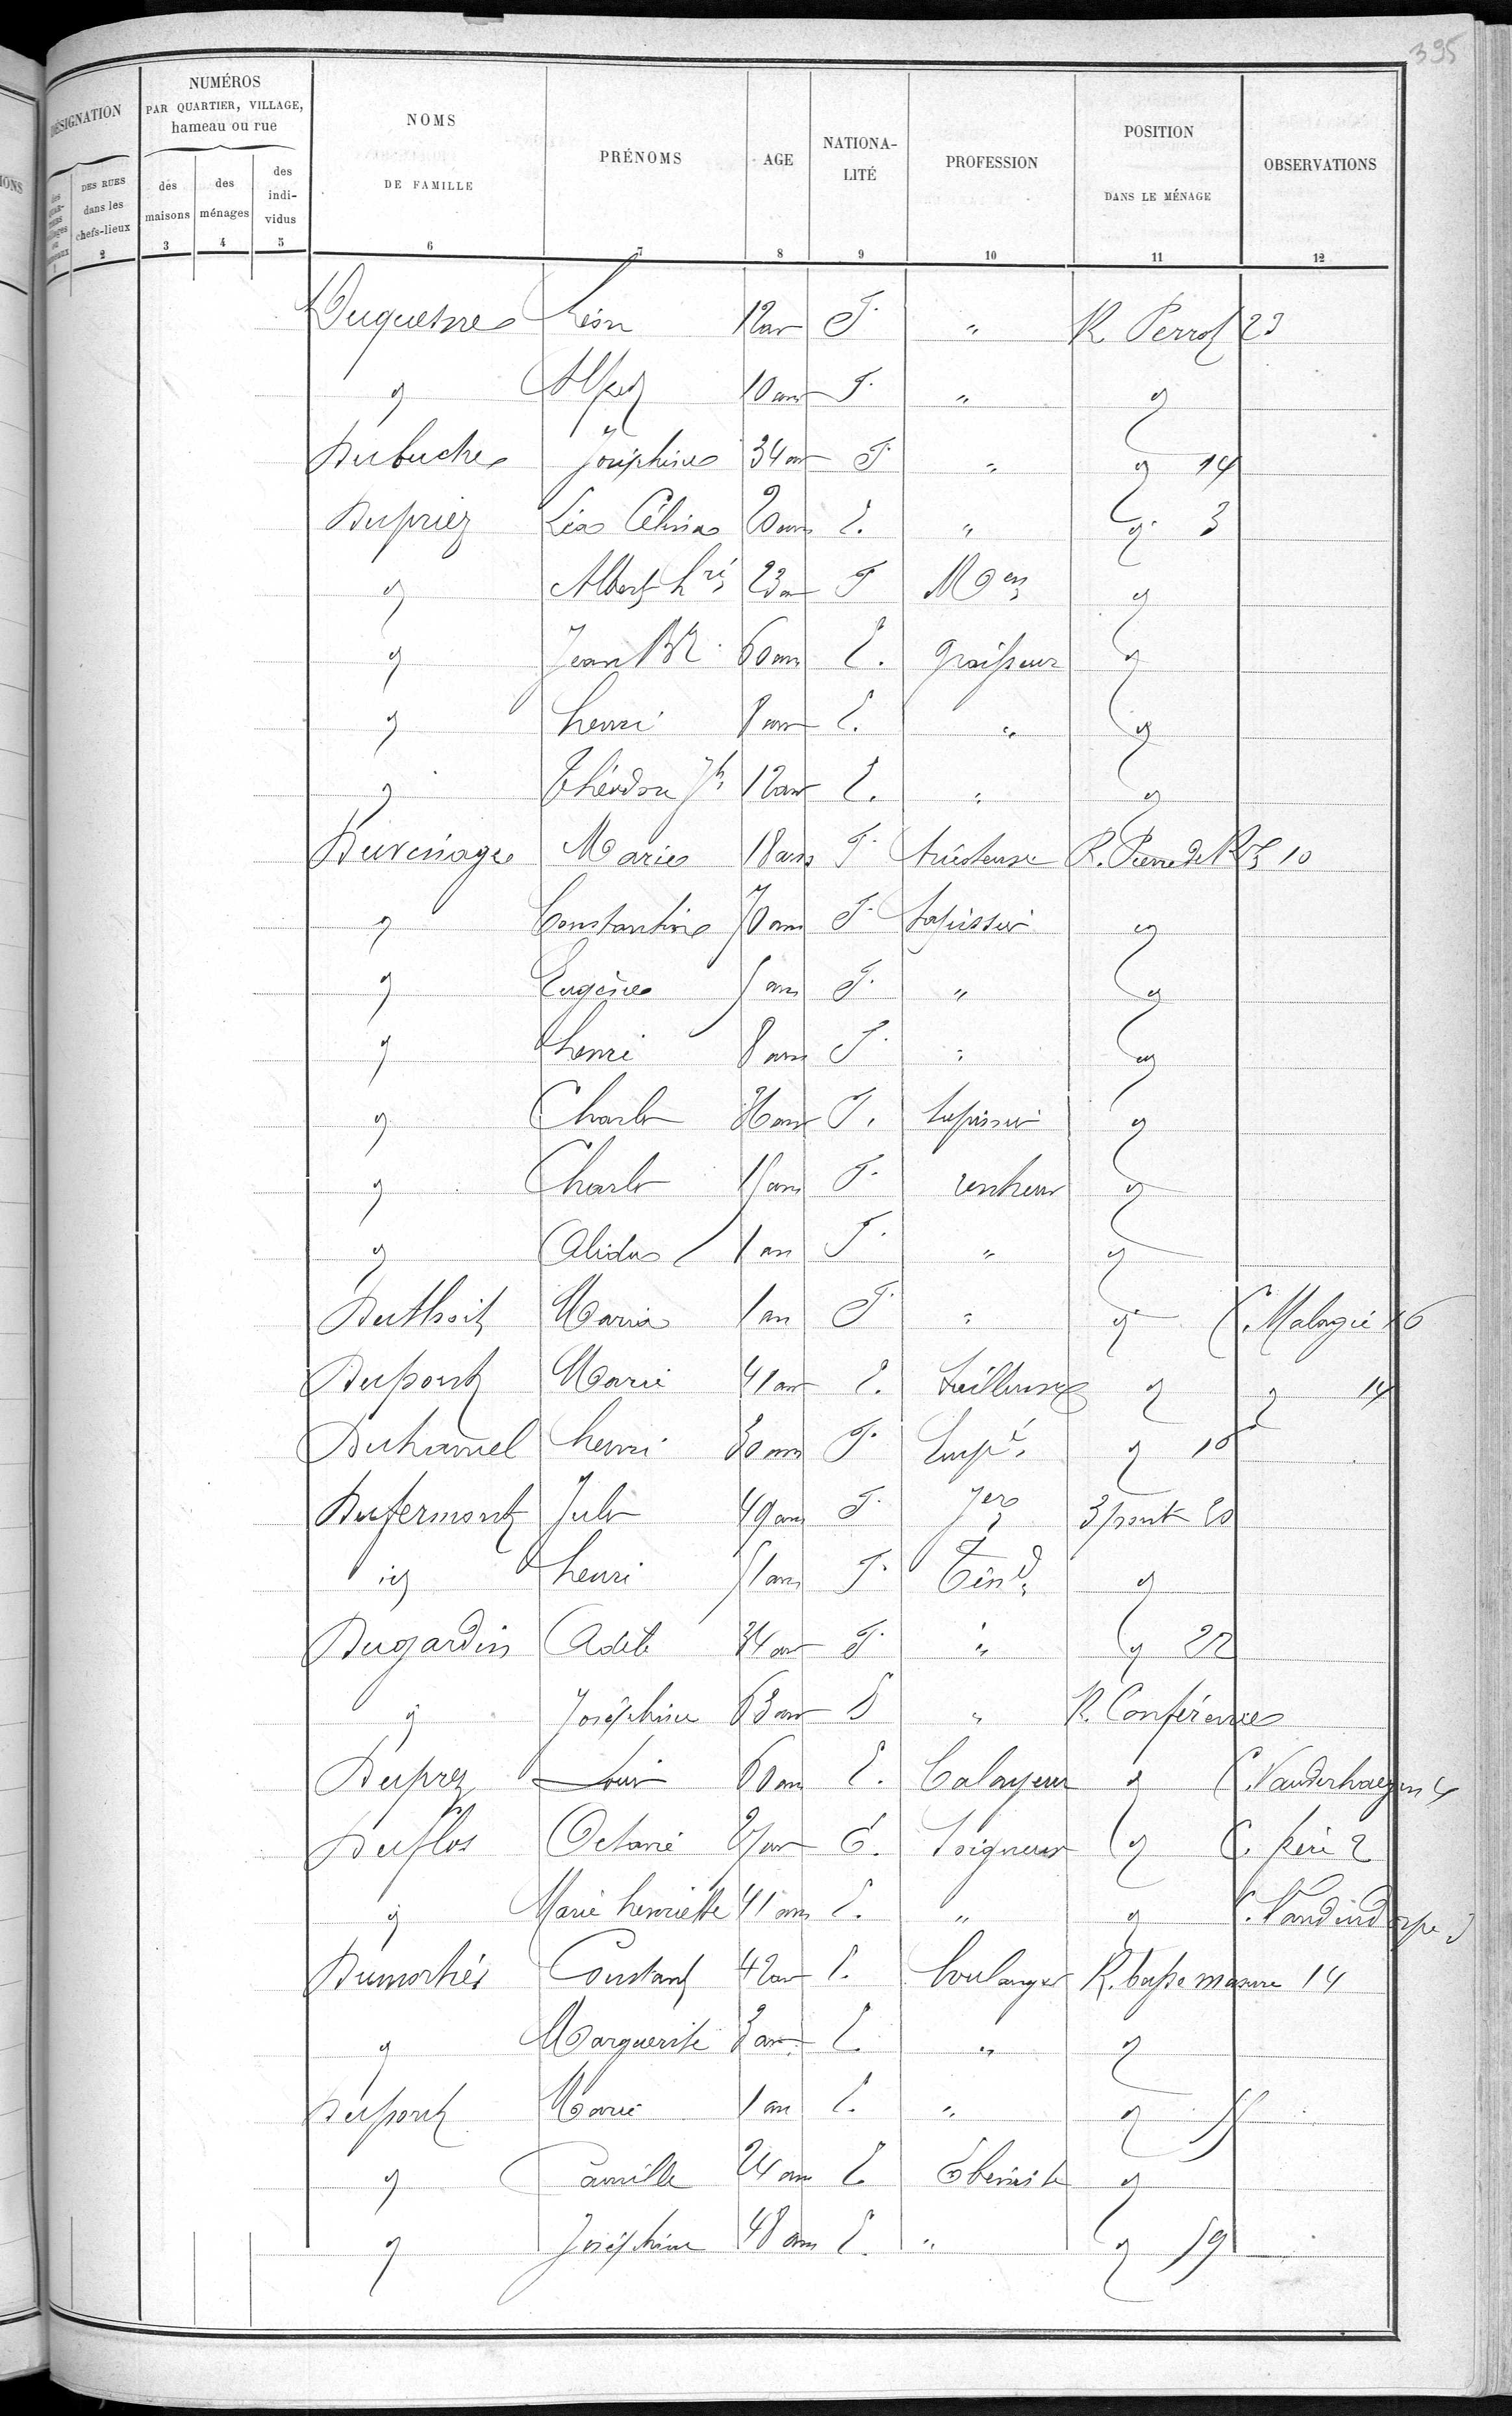 395
DÉSIGNATION
NUMÉROS
PAR QUARTIER, VILLAGE,
hameau ou rue
NOMS
DE FAMILLE
PRÉNOMS
AGE
NATIONA-
LITÉ
PROFESSION
POSITION
DANS LE MÉNAGE
OBSERVATIONS
DES RUES
dans les
chefs-lieux
des
maisons
des
ménages
des
indi-
vidus
1 2 3 4 5 6 7 8 9 10 11 12
Duquesne Léon 12 ans F. " R Perrot 23
d Alfred 10 ans F. " d
Dubuche Joséphine 34 ans F. " d 14
Dupriez Léa Célina 20 ans E. " d 3
d Albert hri 23 ans F d
d Jean Bte 60 ans E. graisseur d
d henri 8 ans E. " d
d Jh 12 ans E. " d
Duvenage Marie 18 ans F. R. Pierre de 10
d Constantine 70 ans F. tapissier d
d Eugène 5 ans F. " d
d henri 8 ans F. " d
d Charles 36 ans F. tapissier d
d Charles 15 ans F. d
d Alida 1 an F. " d
Duthoit Maria 1 an F. " d C. Malagié 16
Dupont Marie 41 ans E. tailleuse d d 14
Duhamel henri 30 ans F. Empé. d 10
Dufermont Jules 49 ans F. Jer 3 ponts 20
id henri 51 ans F. Teind. d
Dugardin Adèle 34 ans F. " d 22
d Joséphine 63 ans F " R. Conférence
Duprez Louis 60 ans E. Balayeur d C. Vanderhaegen 4
Duflos Octavie 27 ans E. Soigneuse d C. 2
d Marie henriette 41 ans E. " d C.
Dumortier Constant 42 ans E. boulanger R. basse masure 14
d Marguerite 3 ans E. " d
Dupont Marie 1 an E. " d 55
d Camille 24 ans E. Ebéniste d
d Joséphine 48 ans E. " d 59